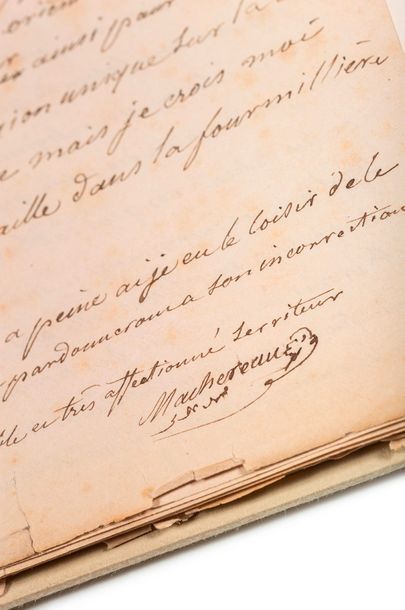 orien
ainsi pour
ion unique sur la
mais je crois moi
aille dans la fourmillière
a peine ai je eu le loisir de le
pardonneront a son incorrection
et très affectionné serviteur
Machereau